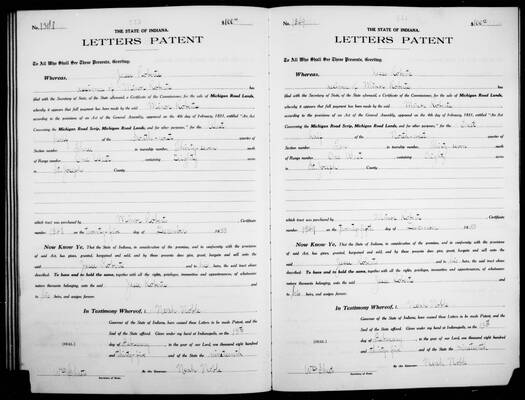 No. 1368 $100.00
THE STATE OF INDIANA.
LETTERS PATENT
To All Who Shall See These Presents, Greeting:
Whereas,
has
filed with the Secretary of State, of the State aforesaid, a Certificate of the Commissioner, for the sale of Michigan Road Lands,
whereby it appears that full payment has been made by the said
according to the provisions of an Act of the General Assembly, approved on the 4th day of February, 1831, entitled "An Act
Concerning the Michigan Road Scrip, Michigan Road Lands, and for other purposes," for the East
half of the Northwest quarter of
Section number in township number Thirty seven
of Range number One East containing Eighty acres
in St. Joseph County.
which tract was purchased by Certificate
number 1368 on day of December 1833
Now Know Ye, That the State of Indiana, in consideration of the premises, and in conformity with the provisions
of said Act, has given, granted, bargained and sold, and by these presents does give, grant, bargain and sell unto the
said and his heirs, the said tract above
described. To have and to hold the same, together with all the rights, privileges, immunities and appurtenances, of whatsoever
nature thereunto belonging, unto the said
to his heirs, and assigns forever.
In Testimony Whereof, I Noah Noble
Governor of the State of Indiana, have caused these Letters to be made Patent, and the
Seal of the State affixed. Given under my hand at Indianapolis, on the
(SEAL) day of in the year of our Lord, one thousand eight hundred
and thirty five and of the State the nineteenth
By the Governor: Noah Noble
Secretary of State.
No. 1369 $100.00
THE STATE OF INDIANA.
LETTERS PATENT
To All Who Shall See These Presents, Greeting:
Whereas,
has
filed with the Secretary of State, of the State aforesaid, a Certificate of the Commissioner, for the sale of Michigan Road Lands,
whereby it appears that full payment has been made by the said
according to the provisions of an Act of the General Assembly, approved on the 4th day of February, 1831, entitled "An Act
Concerning the Michigan Road Scrip, Michigan Road Lands, and for other purposes," for the East
half of the Northwest quarter of
Section number in township number Thirty seven
of Range number One West containing Eighty acres
in St. Joseph County.
which tract was purchased by Certificate
number 1369 on day of December 1833
Now Know Ye, That the State of Indiana, in consideration of the premises, and in conformity with the provisions
of said Act, has given, granted, bargained and sold, and by these presents does give, grant, bargain and sell unto the
said and his heirs, the said tract above
described. To have and to hold the same, together with all the rights, privileges, immunities and appurtenances, of whatsoever
nature thereunto belonging, unto the said
to his heirs, and assigns forever.
In Testimony Whereof, I Noah Noble
Governor of the State of Indiana, have caused these Letters to be made Patent, and the
Seal of the State affixed. Given under my hand at Indianapolis, on the
(SEAL) day of in the year of our Lord, one thousand eight hundred
and thirty five and of the State the nineteenth
By the Governor: Noah Noble
Secretary of State.